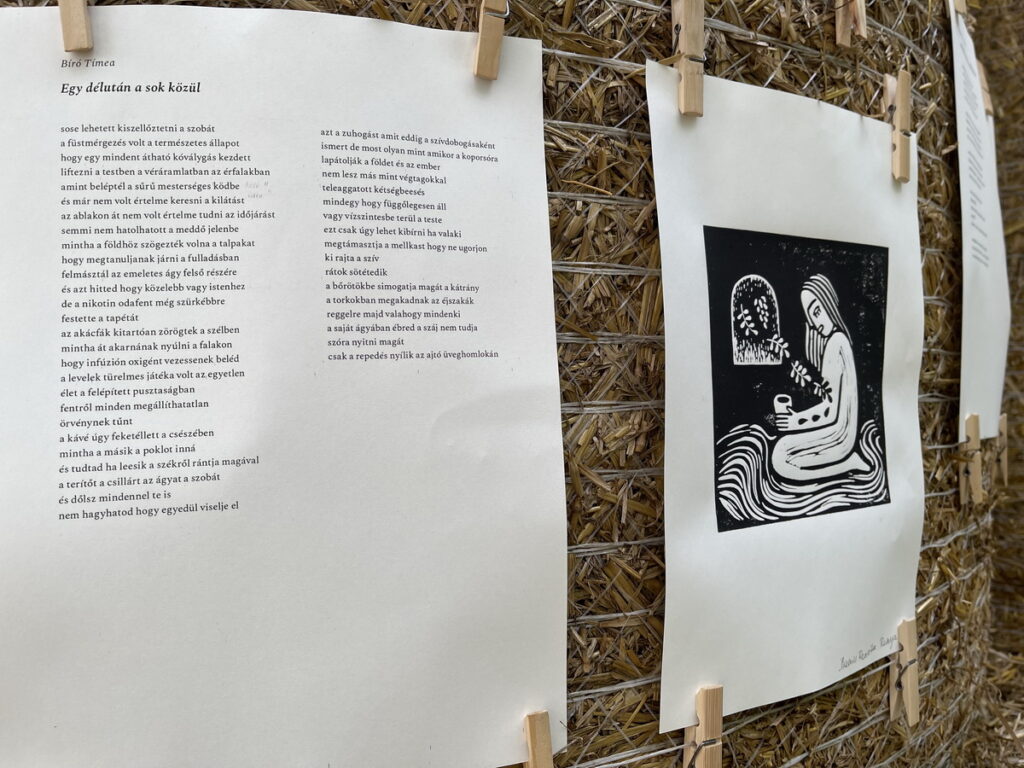 Bíró Tímea
Egy délután a sok közül
sose lehetett kiszellőztetni a szobát
a füstmérgezés volt a természetes állapot
hogy egy mindent átható kóválygás kezdett
liftezni a testben a véráramlatban az érfalakban
amint beléptél a sűrű mesterséges ködbe
és már nem volt értelme keresni a kilátást
az ablakon át nem volt értelme tudni az időjárást
semmi nem hatolhatott a meddő jelenbe
mintha a földhöz szögezték volna a talpakat
hogy megtanuljanak járni a fulladásban
felmásztál az emeletes ágy felső részére
és azt hitted hogy közelebb vagy istenhez
de a nikotin odafent még szürkébbre
festette a tapétát
az akácfák kitartóan zörögtek a szélben
mintha át akarnának nyúlni a falakon
hogy infúzión oxigént vezessenek beléd
a levelek türelmes játéka volt az egyetlen
élet a felépített pusztaságban
fentről minden megállíthatatlan
örvénynek tűnt
a kávé úgy feketéllett a csészében
mintha a másik a poklot inná
és tudtad ha leesik a székről rántja magával
a terítőt a csillárt az ágyat a szobát
és dőlsz mindennel te is
nem hagyhatod hogy egyedül viselje el
azt a zuhogást amit eddig a szívdobogásaként
ismert de most olyan mint amikor a koporsóra
lapátolják a földet és az ember
nem lesz más mint végtagokkal
teleaggatott kétségbeesés
mindegy hogy függőlegesen áll
vagy vízszintesbe terül a teste
ezt csak úgy lehet kibírni ha valaki
megtámasztja a mellkast hogy ne ugorjon
ki rajta a szív
rátok sötétedik
a bőrötökbe simogatja magát a kátrány
a torkokban megakadnak az éjszakák
reggelre majd valahogy mindenki
a saját ágyában ébred a száj nem tudja
szóra nyitni magát
csak a repedés nyílik az ajtó üveghomlokán